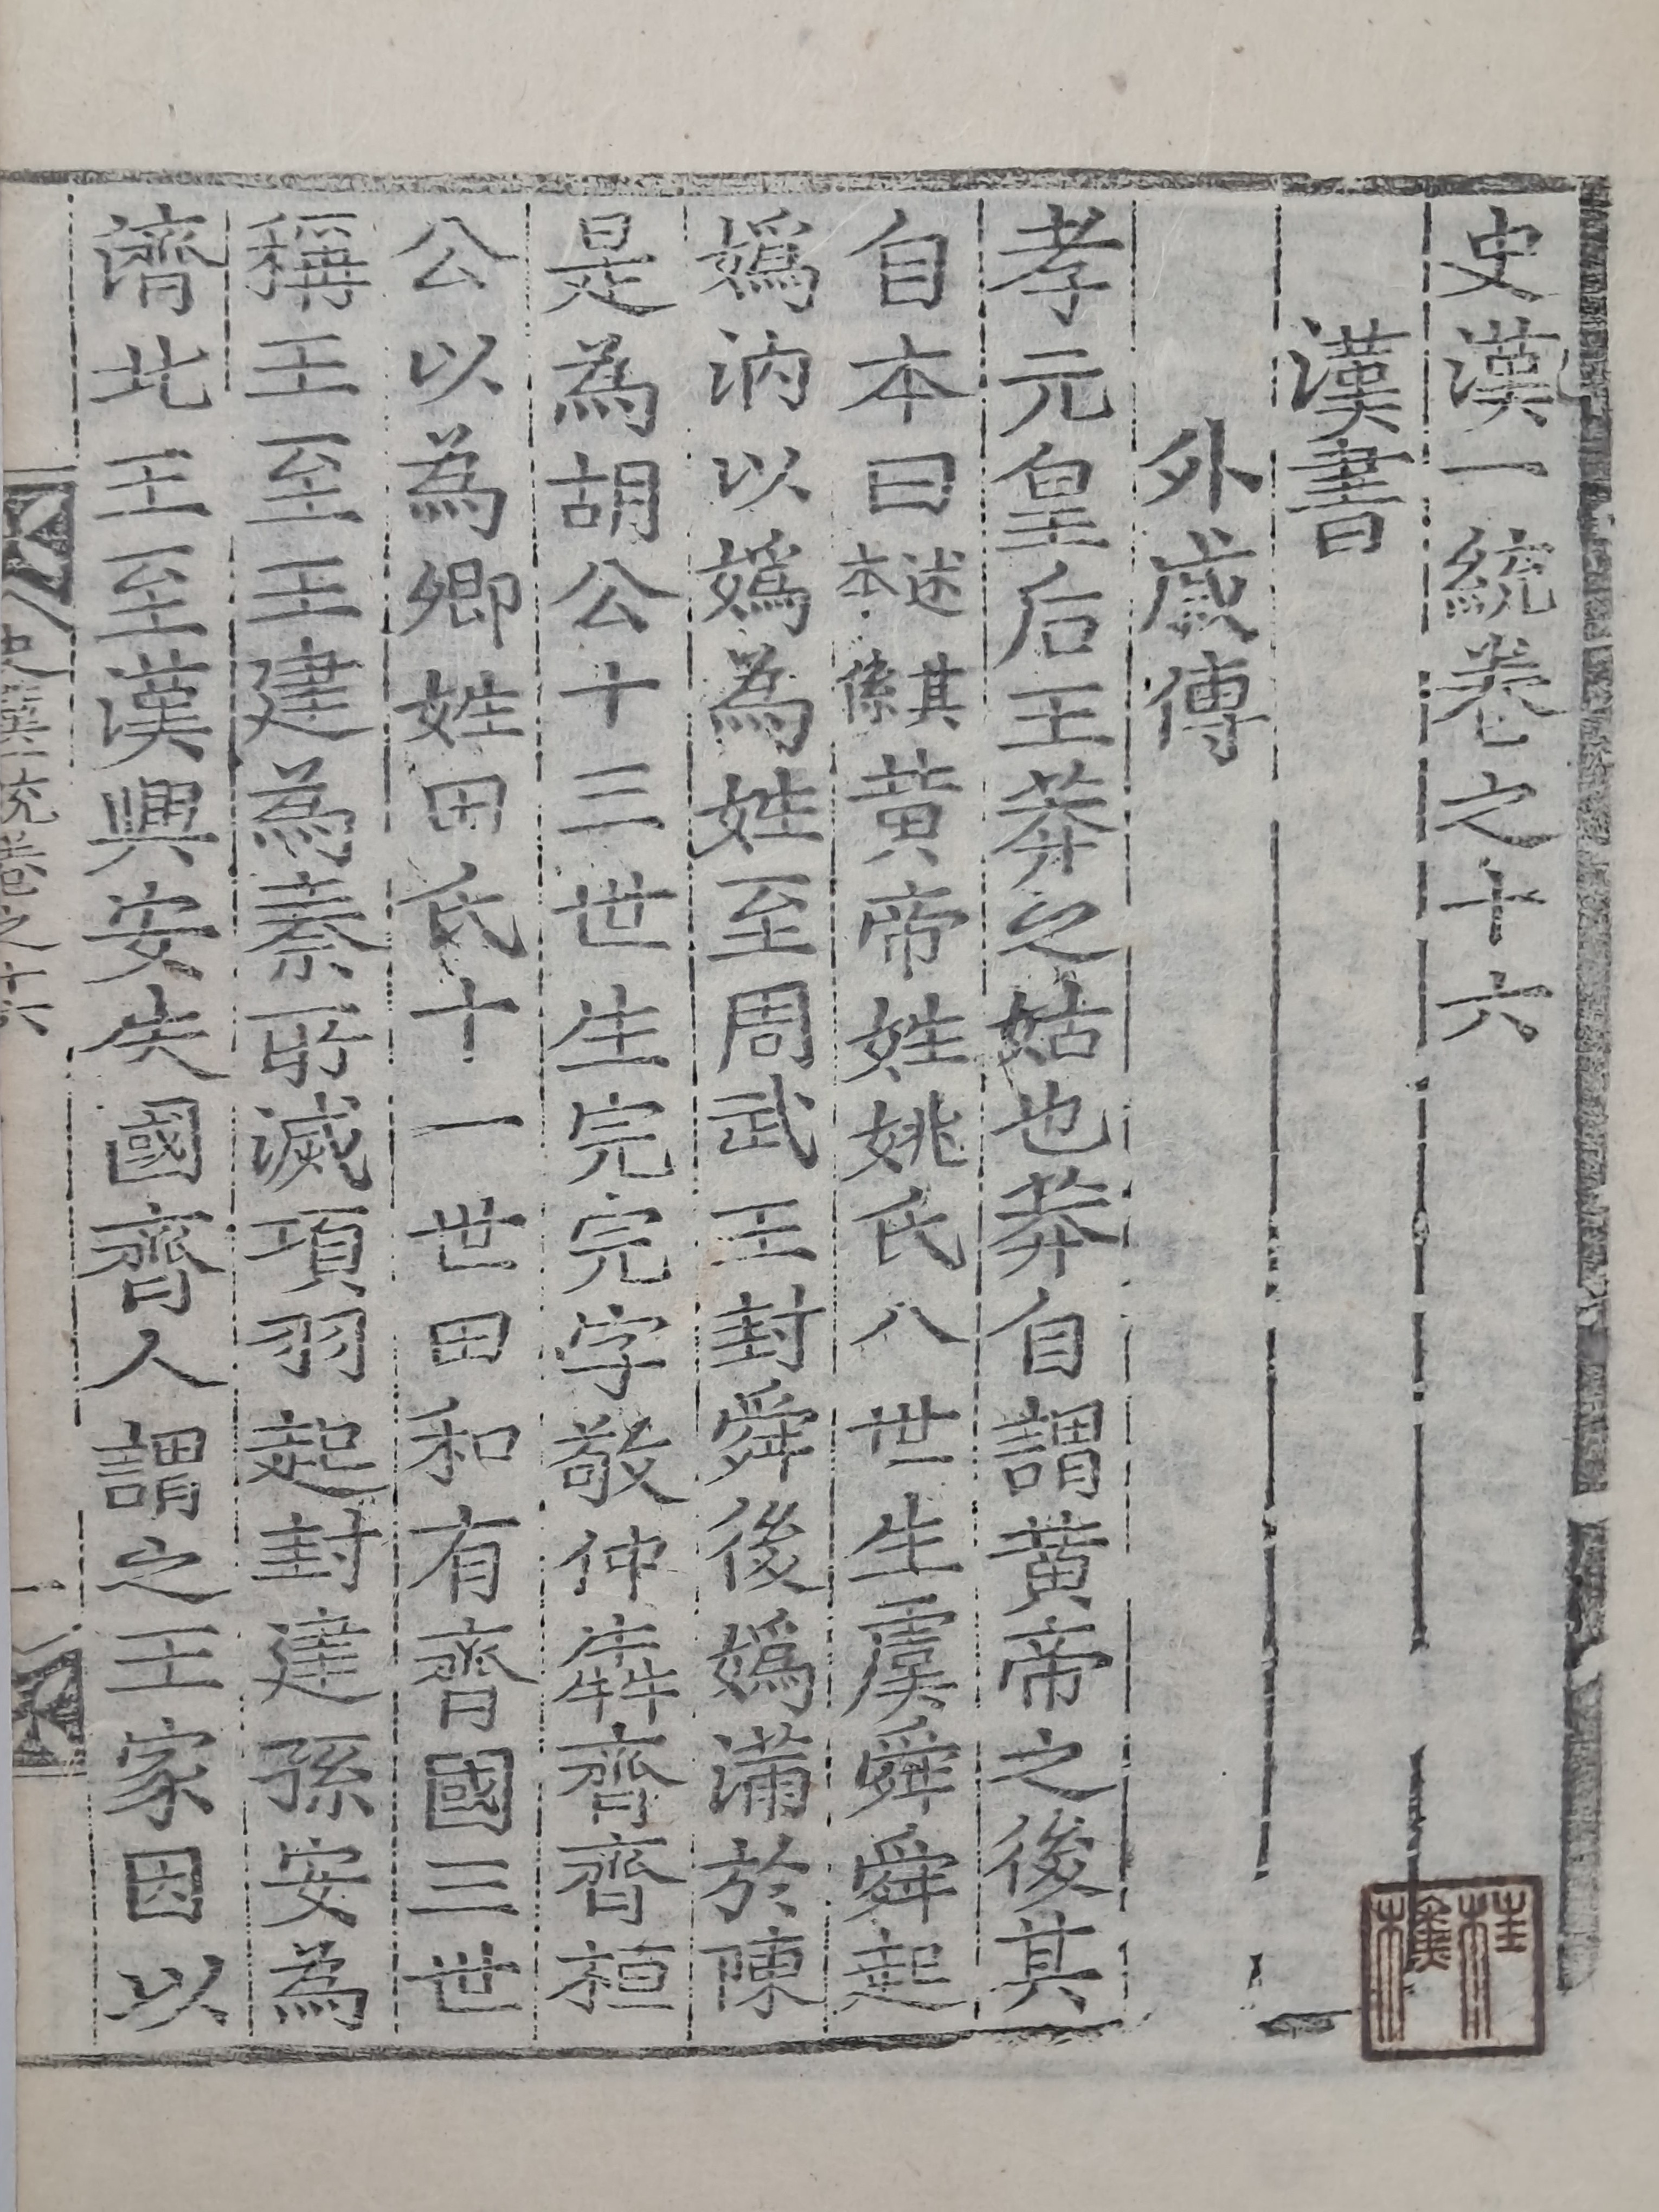 史漢一統卷之十六
漢書
外戚傳
孝元皇后王莽之姑也莽自謂黃帝之後其
自本曰述其本系黃帝姓姚氏八世生虞舜舜起
嬀汭以嬀為姓至周武王封舜後嬀滿於陳
是為胡公十三世生完完字敬仲犇齊齊桓
公以為卿姓田氏十一世田和有齊國三世
稱王至王建為秦所滅項羽起封建孫安為
濟北王至漢興安失國齊人謂之王家因以
史漢一統卷之十六
一